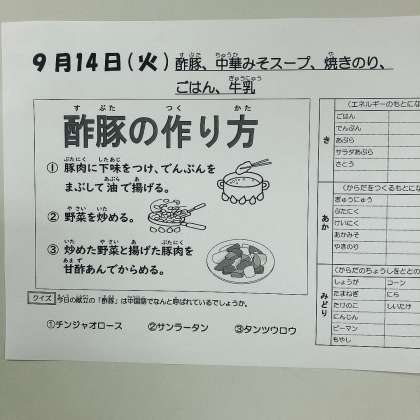 ９月14日(火) 酢豚、中華みそスープ、焼きのり、
ごはん、牛乳
酢豚の作り方
① 豚肉に下味をつけ、でんぷんを
まぶして油で揚げる。
② 野菜を炒める。
③ 炒めた野菜と揚げた豚肉を
甘酢あんでからめる。
クイズ 今日の献立の「酢豚」は中国語でなんと呼ばれているでしょうか。
①チンジャオロース ②サンラータン ③タンツウロウ
き
(エネルギーのもとにな
ごはん
でんぷん
あぶら
サラダあぶら
さとう
あか
(からだをつくるもとにな
ぎゅうにゅう
ぶたにく
けいにく
あかみそ
やきのり
みどり
(からだのちょうしをととの
しょうが コーン
たまねぎ にら
たけのこ しいたけ
にんじん
ピーマン
もやし